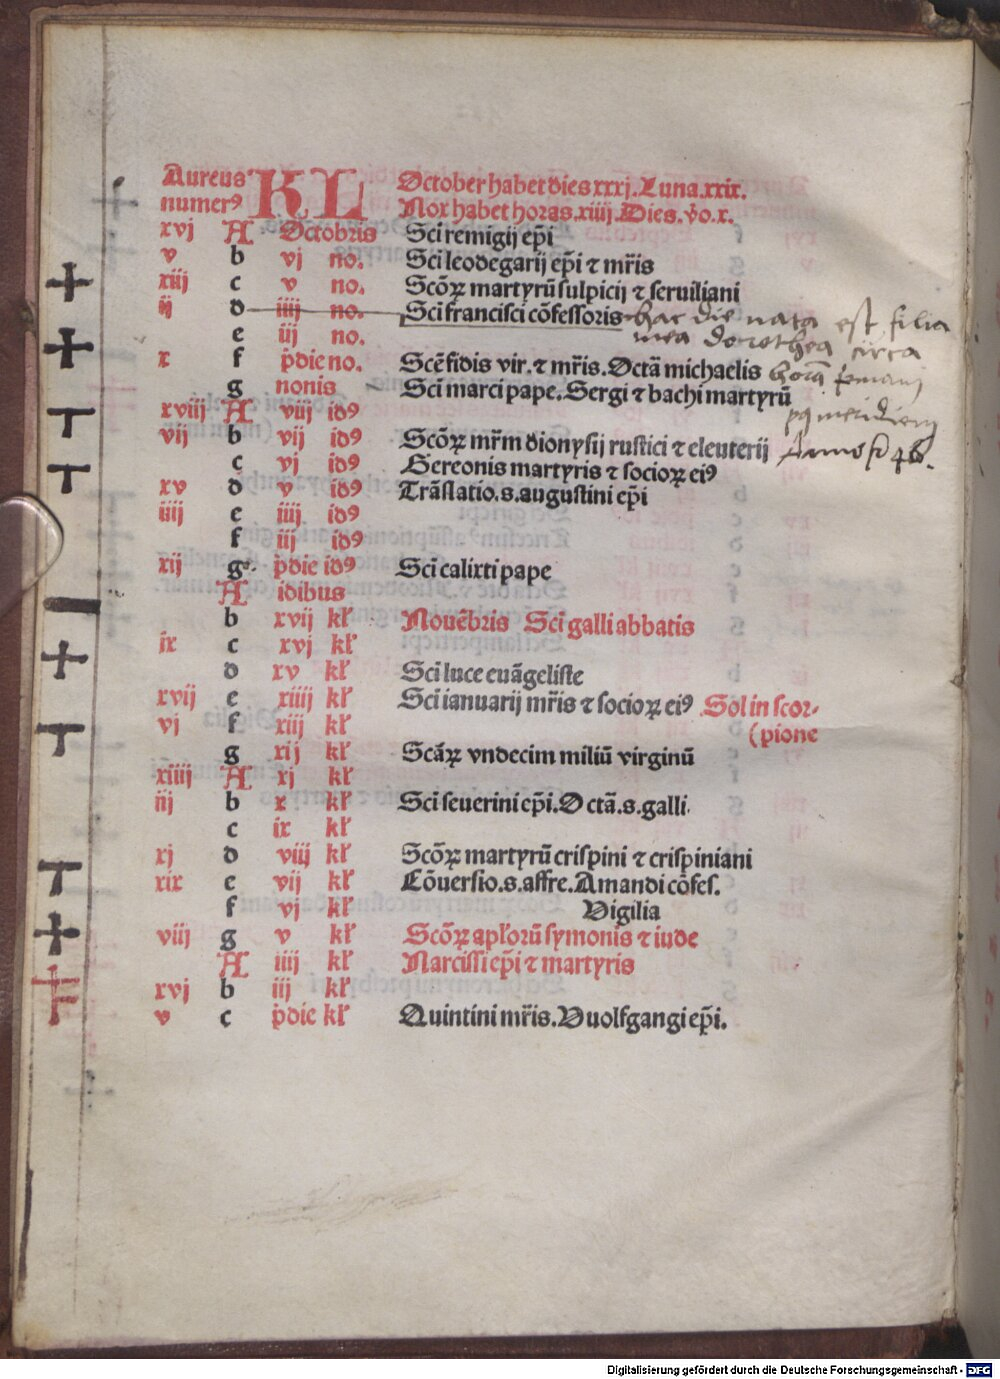 Aureus KL October habet dies xxxj. Luna. xxix.
numerꝰ Nox habet horas. xiiij. Dies. v̓o. x.
xvj A Octobris Sci remigij ep̄i
v b vj no. Sci leodegarij ep̄i ⁊ mr̄is
xiij c v no. Scōꝝ martyrū sulpicij ⁊ seruiliani
ij d iiij no. Sci francisci cōfessoris hac die nata est filia
e iij no. mea dorothea circa
x f p̓die no. Scē fidis vir. ⁊ mr̄is. Octā michaelis horā
g nonis Sci marci pape. Sergi ⁊ bachi martyrū
xviij A viij idꝰ meridiem
vij b vij idꝰ Scōꝝ mr̄m dionysij rustici ⁊ eleuterij Anno 46.
c vj idꝰ Gereonis martyris ⁊ socioꝝ eiꝰ
xv d v idꝰ Trāslatio. s. augustini ep̄i
iiij e iiij idꝰ
f iij idꝰ
xij g p̓die idꝰ Sci calixti pape
A idibus
b xvij kł Nouēbris Sci galli abbatis
ix c xvj kł
d xv kł Sci luce euāgeliste
xvij e xiiij kł Sci ianuarij mr̄is ⁊ socioꝝ eiꝰ Sol in scor-
vj f xiij kł (pione
g xij kł Scāꝝ vndecim miliū virginū
xiiij A xj kł
iij b x kł Sci seuerini ep̄i. Octā. s. galli.
c ix kł
xj d viij kł Scōꝝ martyrū crispini ⁊ crispiniani
xix e vij kł Cōuersio. s. affre. Amandi cōfes.
f vj kł Vigilia
viij g v kł Scōꝝ apłorū symonis ⁊ iude
A iiij kł Narcissi ep̄i ⁊ martyris
xvj b iij kł
v c p̓die kł Quintini mr̄is. Vuolfgangi ep̄i.
Digitalisierung gefördert durch die Deutsche Forschungsgemeinschaft - DFG